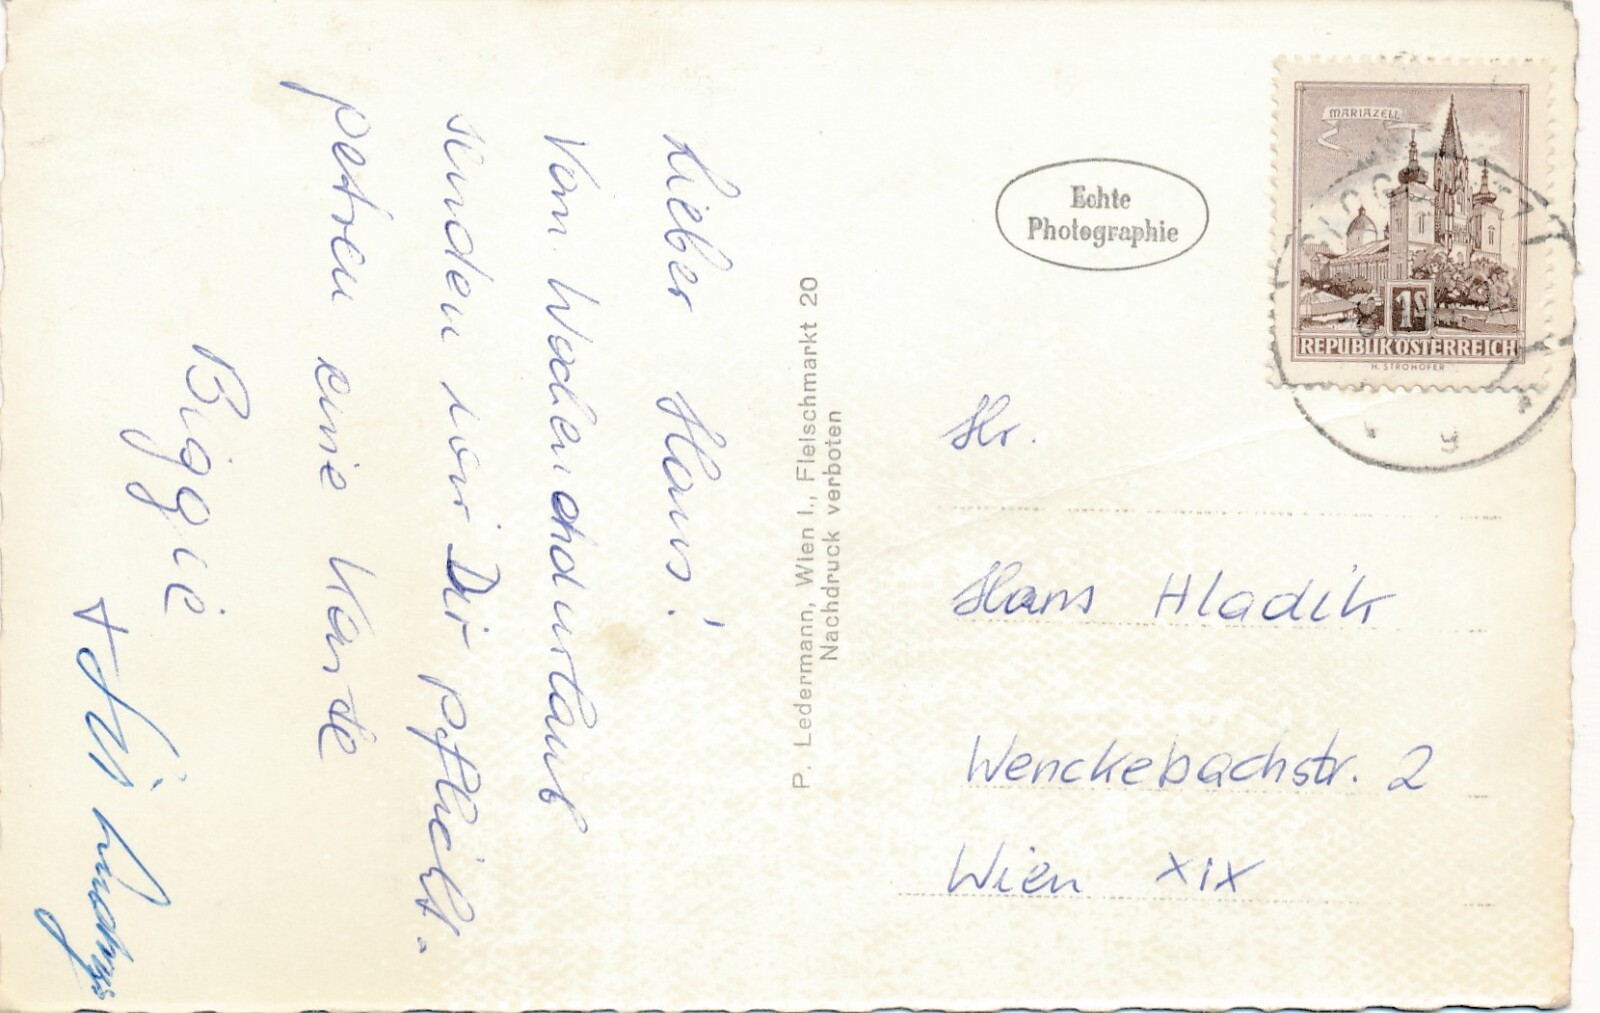 Lieber Hans!
Vom Wochenendurlaub
senden wir Dir pflicht-
getreu eine Karte
Biggie
+
P. Ledermann, Wien I., Fleischmarkt 20
Nachdruck verboten
Echte
Photographie
MARIAZELL
1S
REPUBLIK ÖSTERREICH
H. STROHOFER
Hr.
Hans Hladik
Wenckebachstr. 2
Wien XIX